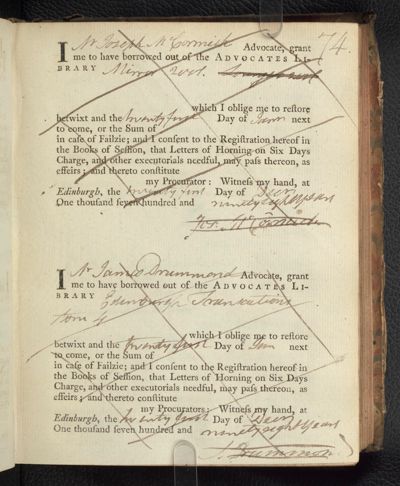 74.
I Mr Joseph McCormick Advocate, grant
me to have borrowed out of the ADVOCATES LI-
BRARY Mirror
which I oblige me to restore
betwixt and the twenty first Day of Janr next
to come, or the Sum of
in case of Failzie; and I consent to the Registration hereof in
the Books of Session, that Letters of Horning on Six Days
Charge, and other executorials needful, may pass thereon, as
effeirs; and thereto constitute
my Procurator: Witness my hand, at
Edinburgh, the twenty first Day of Decr
One thousand seven hundred and ninety eight years
Jos. McCormick
I Mr James Drummond Advocate, grant
me to have borrowed out of the ADVOCATES LI-
BRARY Edinburgh Transactions
tom 4
which I oblige me to restore
betwixt and the twenty first Day of Jan next
to come, or the Sum of
in case of Failzie; and I consent to the Registration hereof in
the Books of Session, that Letters of Horning on Six Days
Charge, and other executorials needful, may pass thereon, as
effeirs; and thereto constitute
my Procurators: Witness my hand, at
Edinburgh, the twenty first Day of Decr
One thousand seven hundred and ninety eight years
J. Drummond